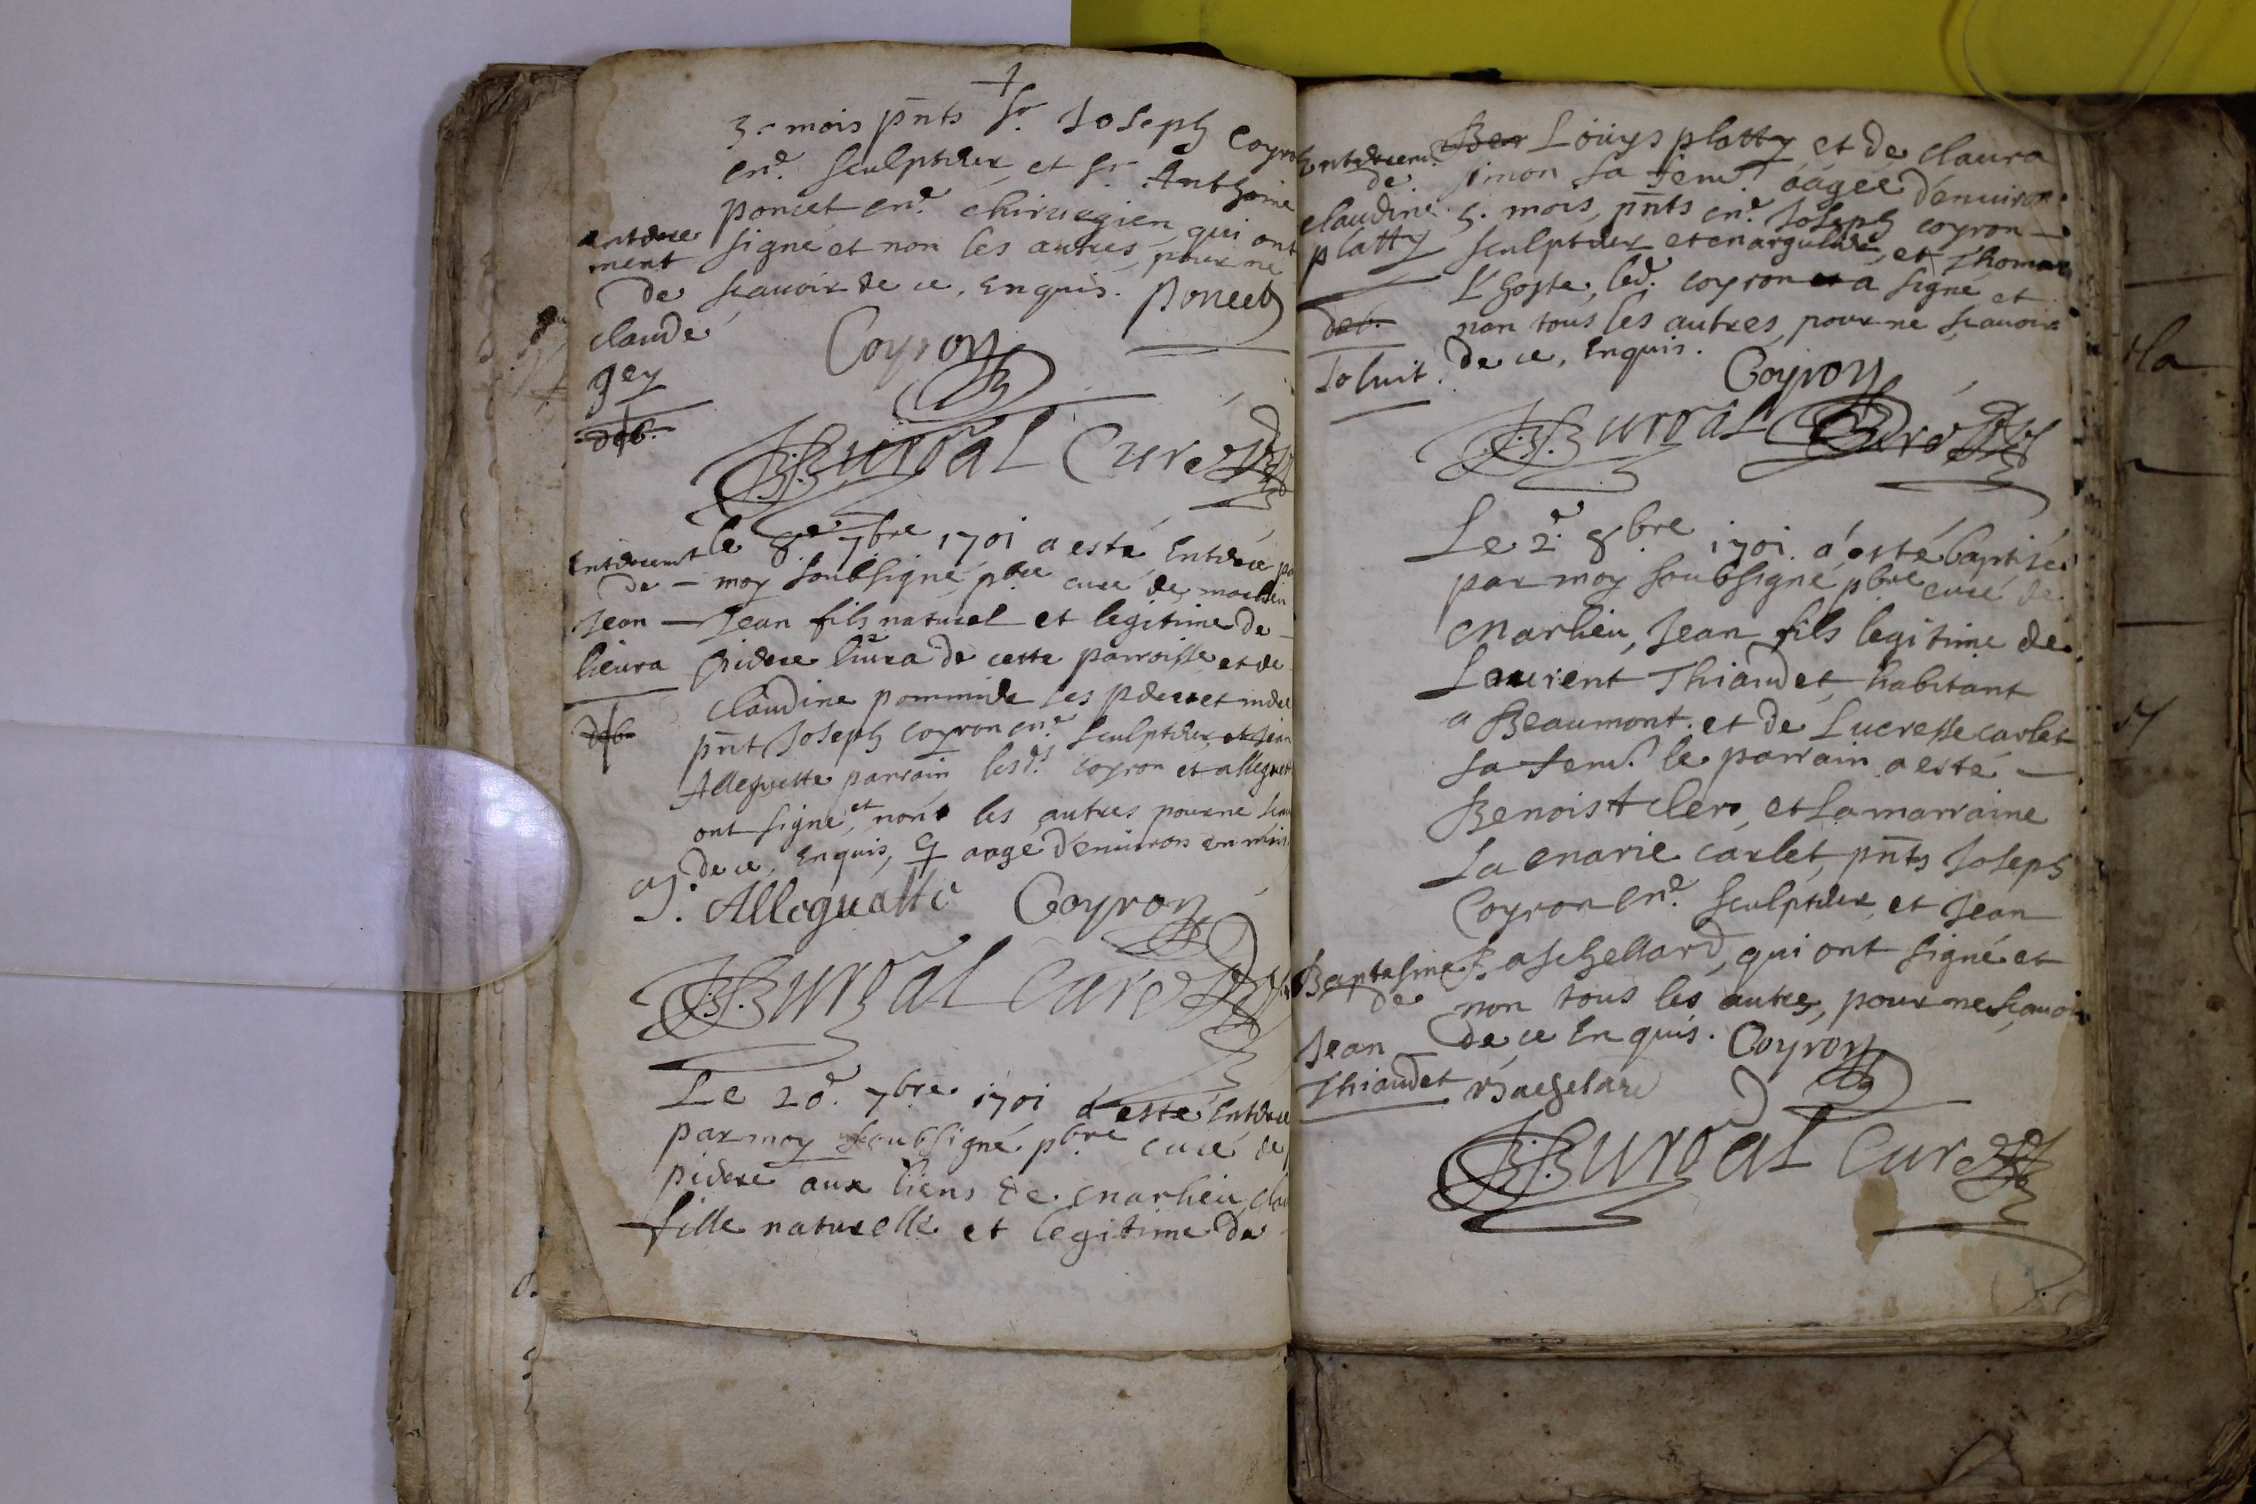 3. mois pñts Sr. Joseph Coyron
me. sculpteur et Sr. Anthoine
poncet me. chirurgien qui ont
signé et non les autres, pour ne
scavoir de ce, enquis. Poncet
enterre
ment
de
claude
gey
deb.
Coyron
Burdal Curé
le 8e 7bre 1701 a esté Enterré pa
moy soubsigné, pbre curé de
Jean fils naturel et legitime de
lieura de cette parroisse et de
claudine pommide ses pere et mere
pñt Joseph coyron me. sculpteur et Jean
Allegnette parrain lesds coyron et allegnet
ont signé, et non les autres pour ne
de ce, enquis, aagé d'enuiron un mois
Enterremt
de
Jean
lieura
deb.
Coyron
Burdal Curé
Le 20e. 7bre 1701 a esté Enterré
par moy soubsigné pbre curé de
aux liens de marlieu
fille naturelle et legitime de
Ber Louys platty et de claura
simon sa feme. aagée d'enuiron
5. mois, pñts me. Joseph coyron
sculpteur et et Thomas
L'hoste, led. coyron et a signé et
non tous les autres, pour ne scavoir
de ce, enquis.
Enterrem.
de
claudine
platty
deb.
Coyron
Burdal Curé
Le 2e. 8bre 1701. a esté baptisé
par moy soubsigné pbre curé de
Marlieu, Jean fils legitime de
Laurent Thiaudet habitant
a Beaumont. et de Lucresse carlet
sa feme. le parrain a esté
Benoist clerc, et la marraine
La marie carlet, pñts Joseph
Coyron me. sculpteur et Jean
Baschellard, qui ont signé et
non tous les autres, pour ne scavoir
de ce enquis. Coyron
Baptesme
de
Jean
Thiaudet
Bachelard
Burdal Curé